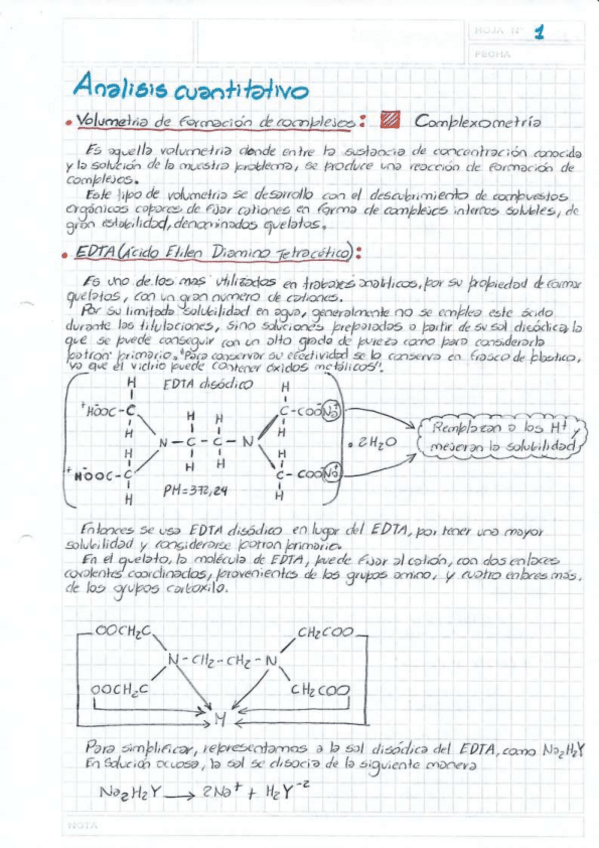 HOJA Nº 1
FECHA
Analisis cuantitativo
• Volumetria de formación de complejos: Complexometría
Es aquella volumetria donde entre la sustancia de concentración conocida
y la solución de la muestra problema, se produce una reacción de formación de
complejos.
Este tipo de volumetria se desarrollo con el descubrimiento de compuestos
orgánicos capaces de fijar cationes en forma de complejos internos solubles, de
gran estabilidad, denominados quelatos.
• EDTA (Ácido Etilen Diamino Tetracético):
Es uno de los mas utilizados en trabajos analiticos, por su propiedad de formar
quelatos, con un gran número de cationes.
Por su limitada solubilidad en agua, generalmente no se emplea este ácido
durante las titulaciones, sino soluciones preparadas a partir de su sal disódica, la
que se puede conseguir con un alto grado de pureza como para considerarla
patron primario. "Para conservar su efectividad se lo conserva en frasco de plastico,
ya que el vidrio puede contener óxidos metálicos".
H EDTA disódico H
⁺HOOC-C C-COONa⁺
H H H H
N-C-C-N . 2H₂O
H H H H
⁺HOOC-C C-COONa⁺
H PM=372,24 H
Remplazan a los H⁺ y
mejoran la solubilidad
Entonces se usa EDTA disódico en lugar del EDTA, por tener una mayor
solubilidad y considerarse patron primario.
En el quelato, la molécula de EDTA, puede fijar al catión, con dos enlaces
covalentes coordinados, provenientes de los grupos amino, y cuatro enlaces más,
de los grupos carboxilo.
OOCH₂C CH₂COO
N-CH₂-CH₂-N
OOCH₂C CH₂COO
M
Para simplificar, representamos a la sal disódica del EDTA, como Na₂H₂Y
En solución acuosa, la sal se disocia de la siguiente manera
Na₂H₂Y → 2Na⁺ + H₂Y⁻²
NOTA